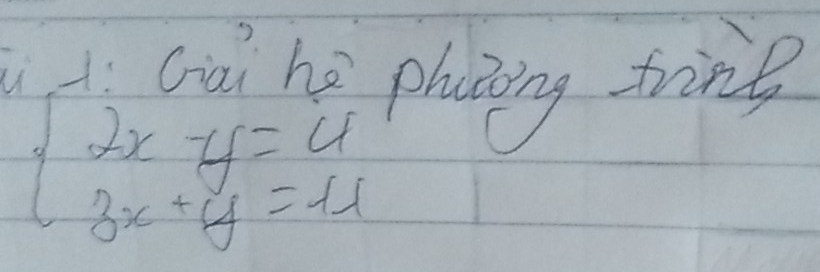 1: Giải hệ phương trình
2x - y = 4
3x + y = 11